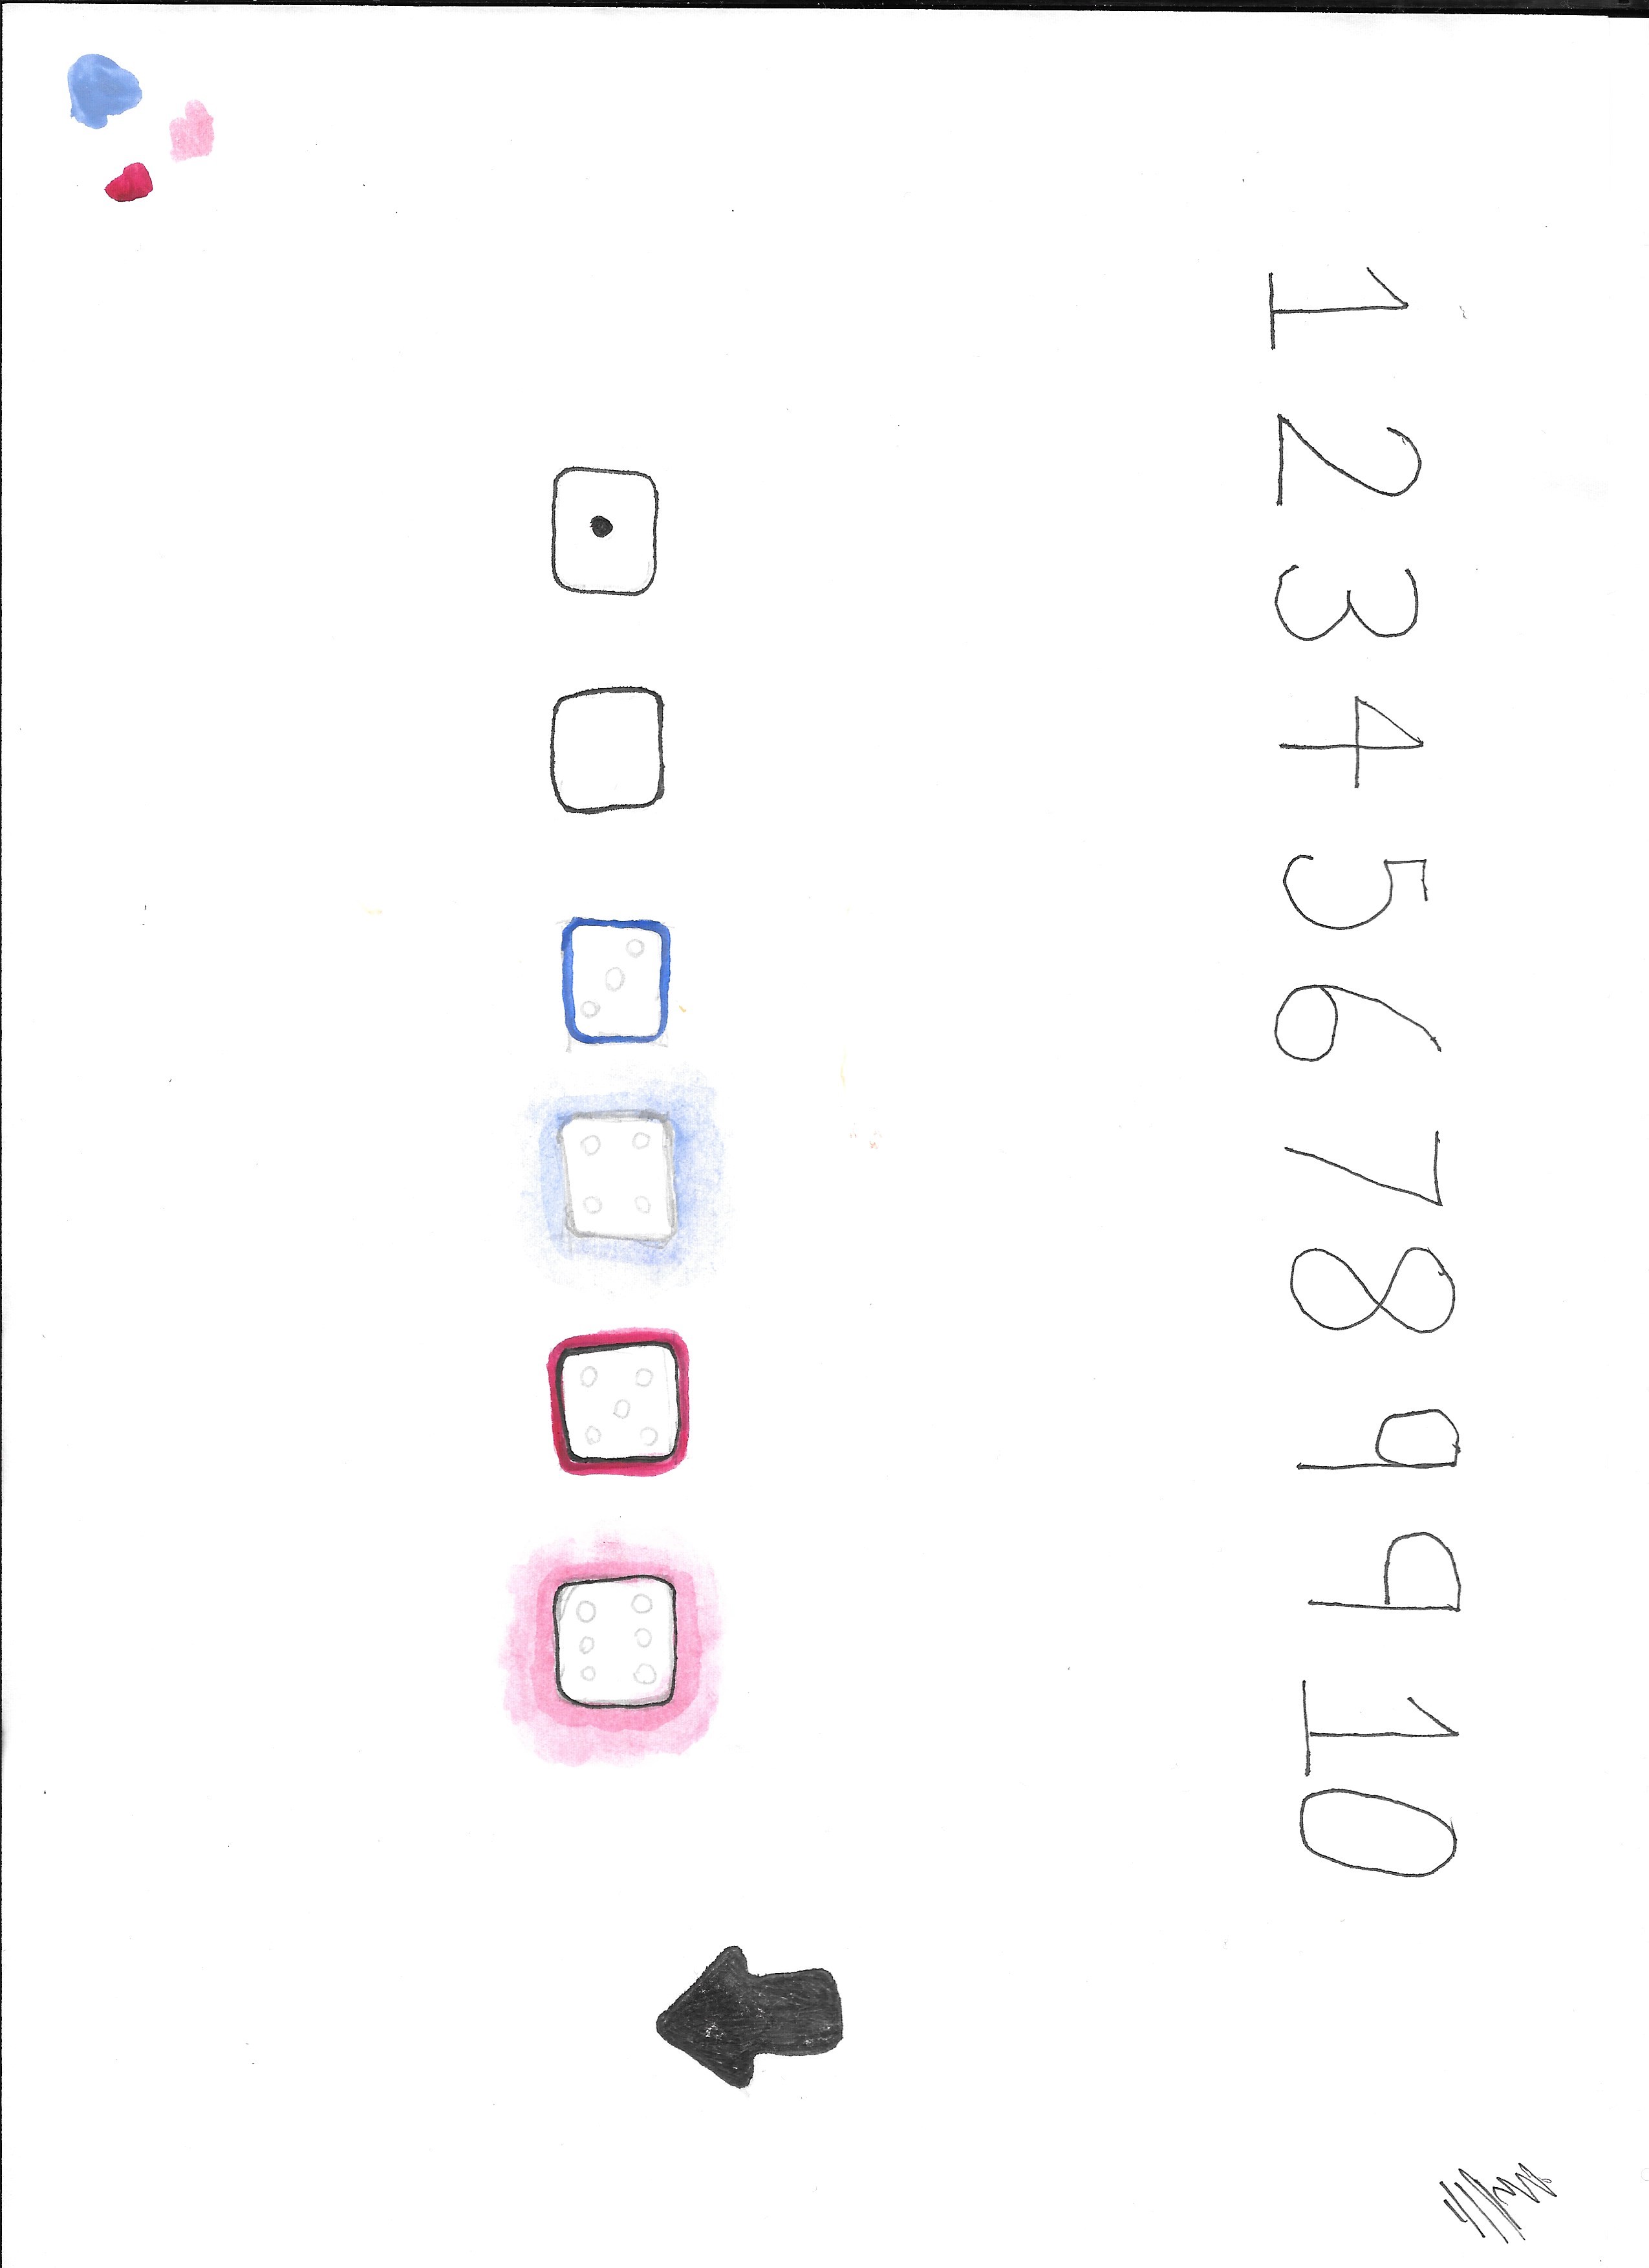 1 2 3 4 5 6 7 8 9 9 10